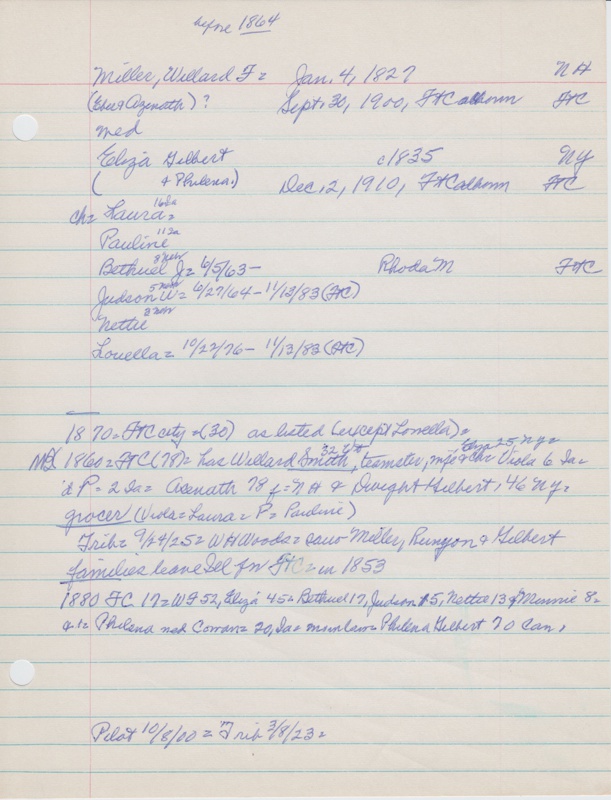 before 1864
Miller, Willard F = Jan. 4, 1827 NH
(Eben & Azenath) ? Sept. 30, 1900, Ft Calhoun FtC
med
Eliza Gilbert c1835 NY
( & Philena) Dec. 2, 1910, Ft Calhoun FtC
ch = Laura = 16 Ia
Pauline 11 Ia
Bethuel J = 6/5/63 – 8 Neb Rhoda M FtC
Judson W = 6/27/64 – 11/13/83 (FtC) 5 Neb
Nettie 3 Neb
Louella = 10/27/76 – 11/13/83 (FtC)
1870 = FtC city = (30) as listed (except Louella) =
1860 = FtC (78) = has Willard Smith, 32 teamster, Eliza 25, NY = Viola 6 Ia =
& P = 2 Ia = Acenath 78 f = NH & Dwight Gilbert, 46 NY =
grocer (Viola = Laura = P = Pauline)
Trib = 9/24/25 = W H Woods = Miller, Runyon & Gilbert
families leave Ill for FtC = in 1853
1880 FC 17 = WF 52, Eliza 45 = Bethuel 17, Judson 15, Nettie 13 & Minnie 8 =
Philena med Cowan = 20, Ia = munlaw = Philena Gilbert 70 Can,
Pilot 10/8/00 = Trib 3/8/23 =